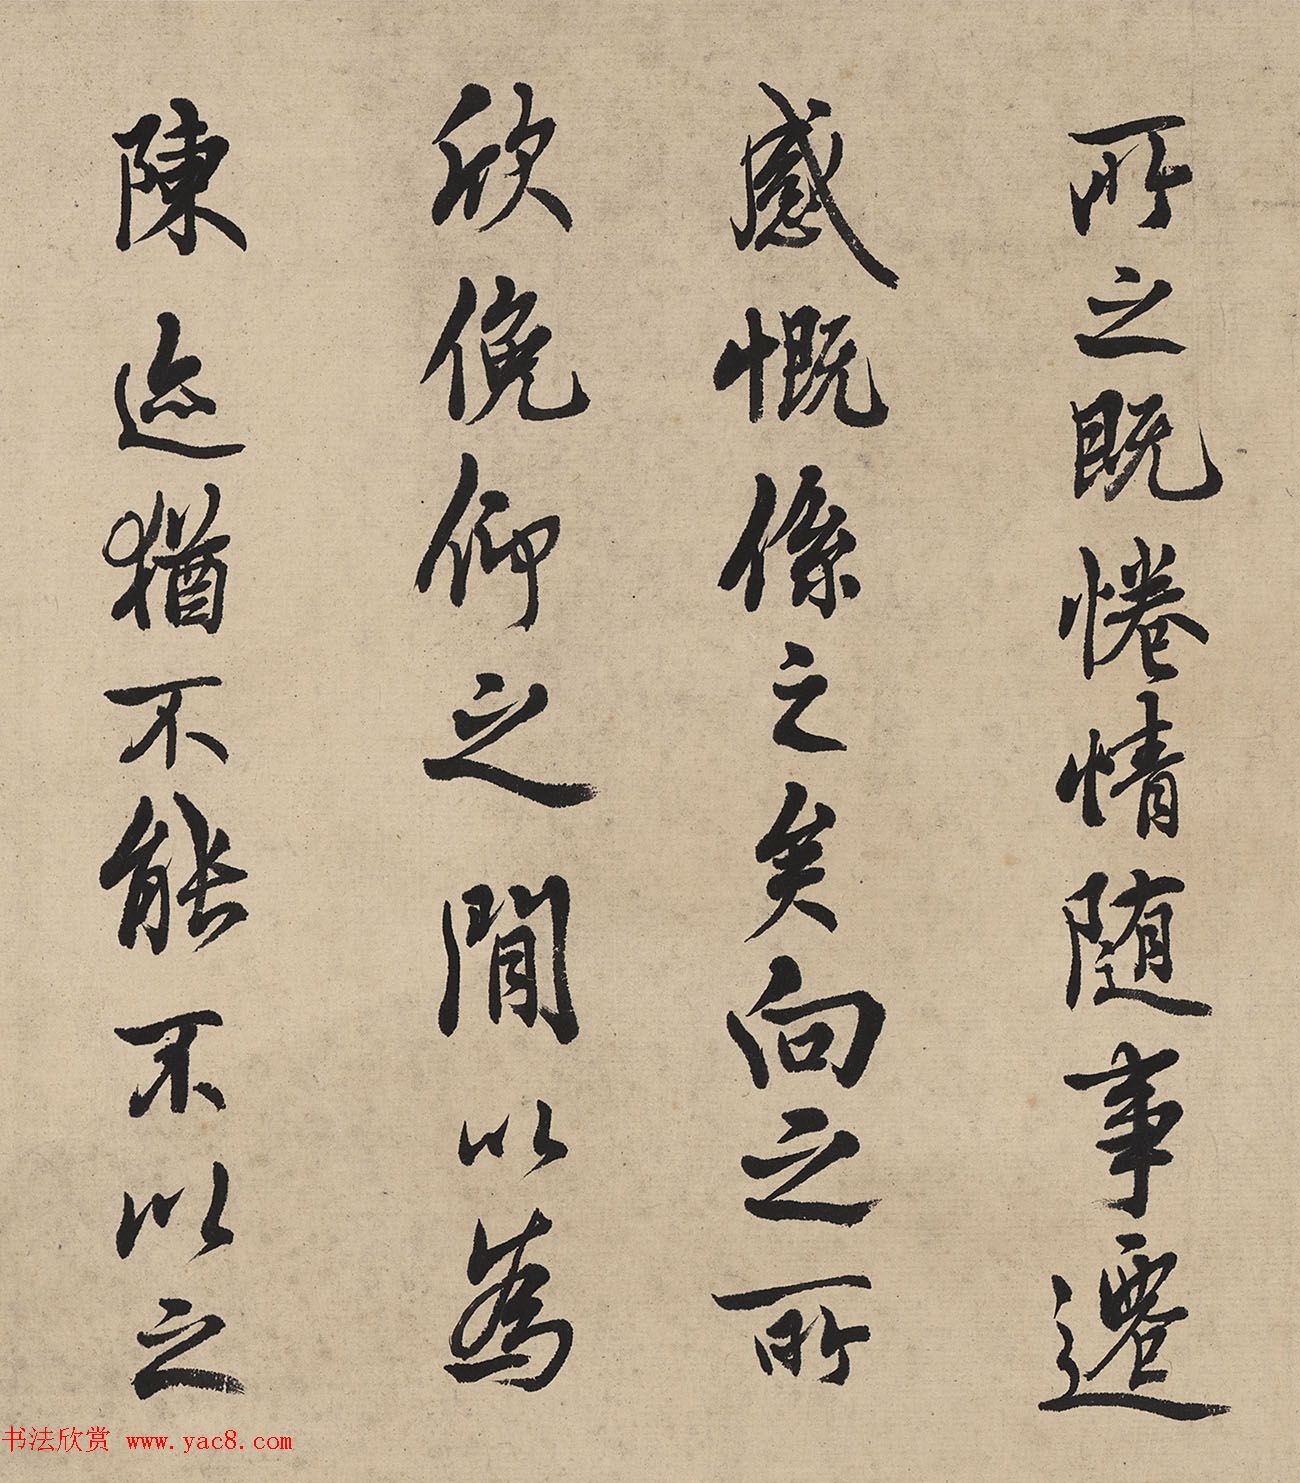 所之既惓情随事遷
感慨係之矣向之所
欣俛仰之間以為
陳迹猶不能不以之
书法欣赏 www.yac8.com